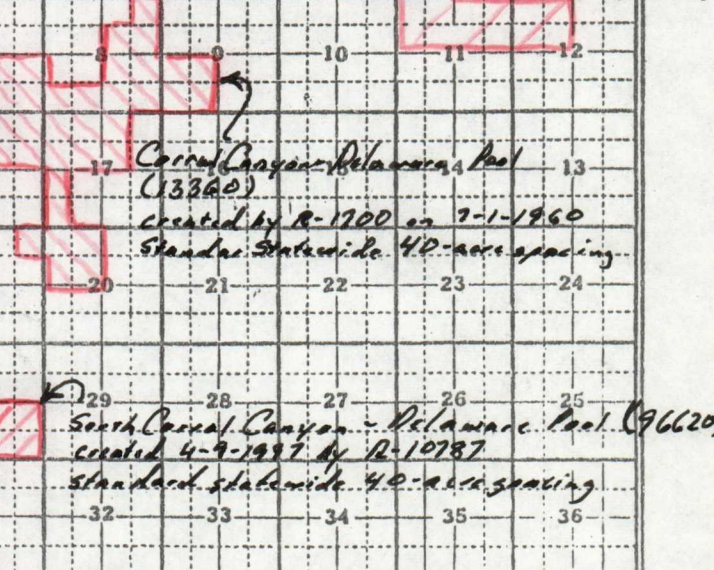 8 9 10 11 12
17 16 15 14 13
Corral Canyon-Delaware Pool
(13360)
created by R-1700 on 7-1-1960
Standar Statewide 40-acre spacing
20 21 22 23 24
29 28 27 26 25
South Corral Canyon - Delaware Pool (96620)
created 4-9-1997 by R-10787
standard statewide 40-acre spacing
32 33 34 35 36